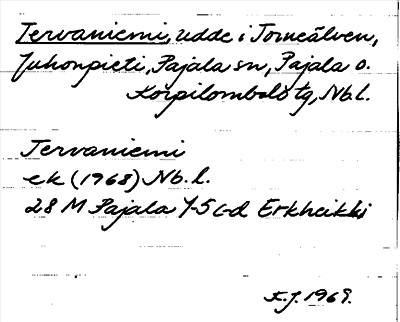 Tervaniemi, udde i Torneälven,
Juhonpieti, Pajala sn, Pajala o.
Korpilombolo tg, Nb.l.
Tervaniemi
ek (1968) Nb.l.
28 M Pajala 7-5 c-d Erkheikki
K.J. 1969.